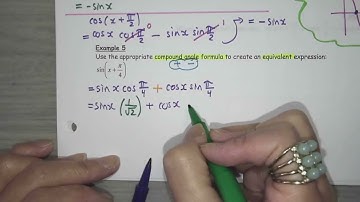 = -sinx
cos(x + π/2)
= cosx cos π/2 0 - sinx sin π/2 1 = -sinx
Example 5
Use the appropriate compound angle formula to create an equivalent expression:
sin(x + π/4) (+ -)
= sinx cos π/4 + cosx sin π/4
= sinx (1/√2) + cosx